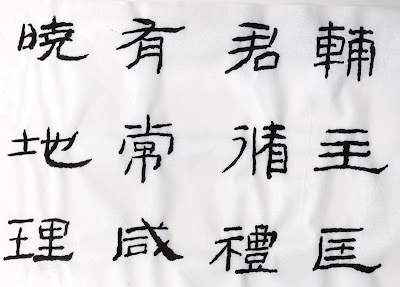 輔主匡
君循禮
有常咸
暁地理